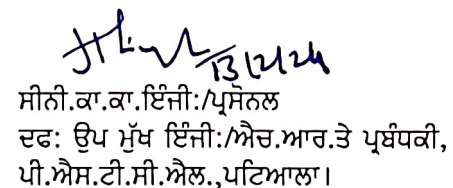 13/2/24
ਸੀਨੀ.ਕਾ.ਕਾ.ਇੰਜੀ:/ਪ੍ਰਸੋਨਲ
ਦਫ: ਉਪ ਮੁੱਖ ਇੰਜੀ:/ਐਚ.ਆਰ.ਤੇ ਪ੍ਰਬੰਧਕੀ,
ਪੀ.ਐਸ.ਟੀ.ਸੀ.ਐਲ.,ਪਟਿਆਲਾ।